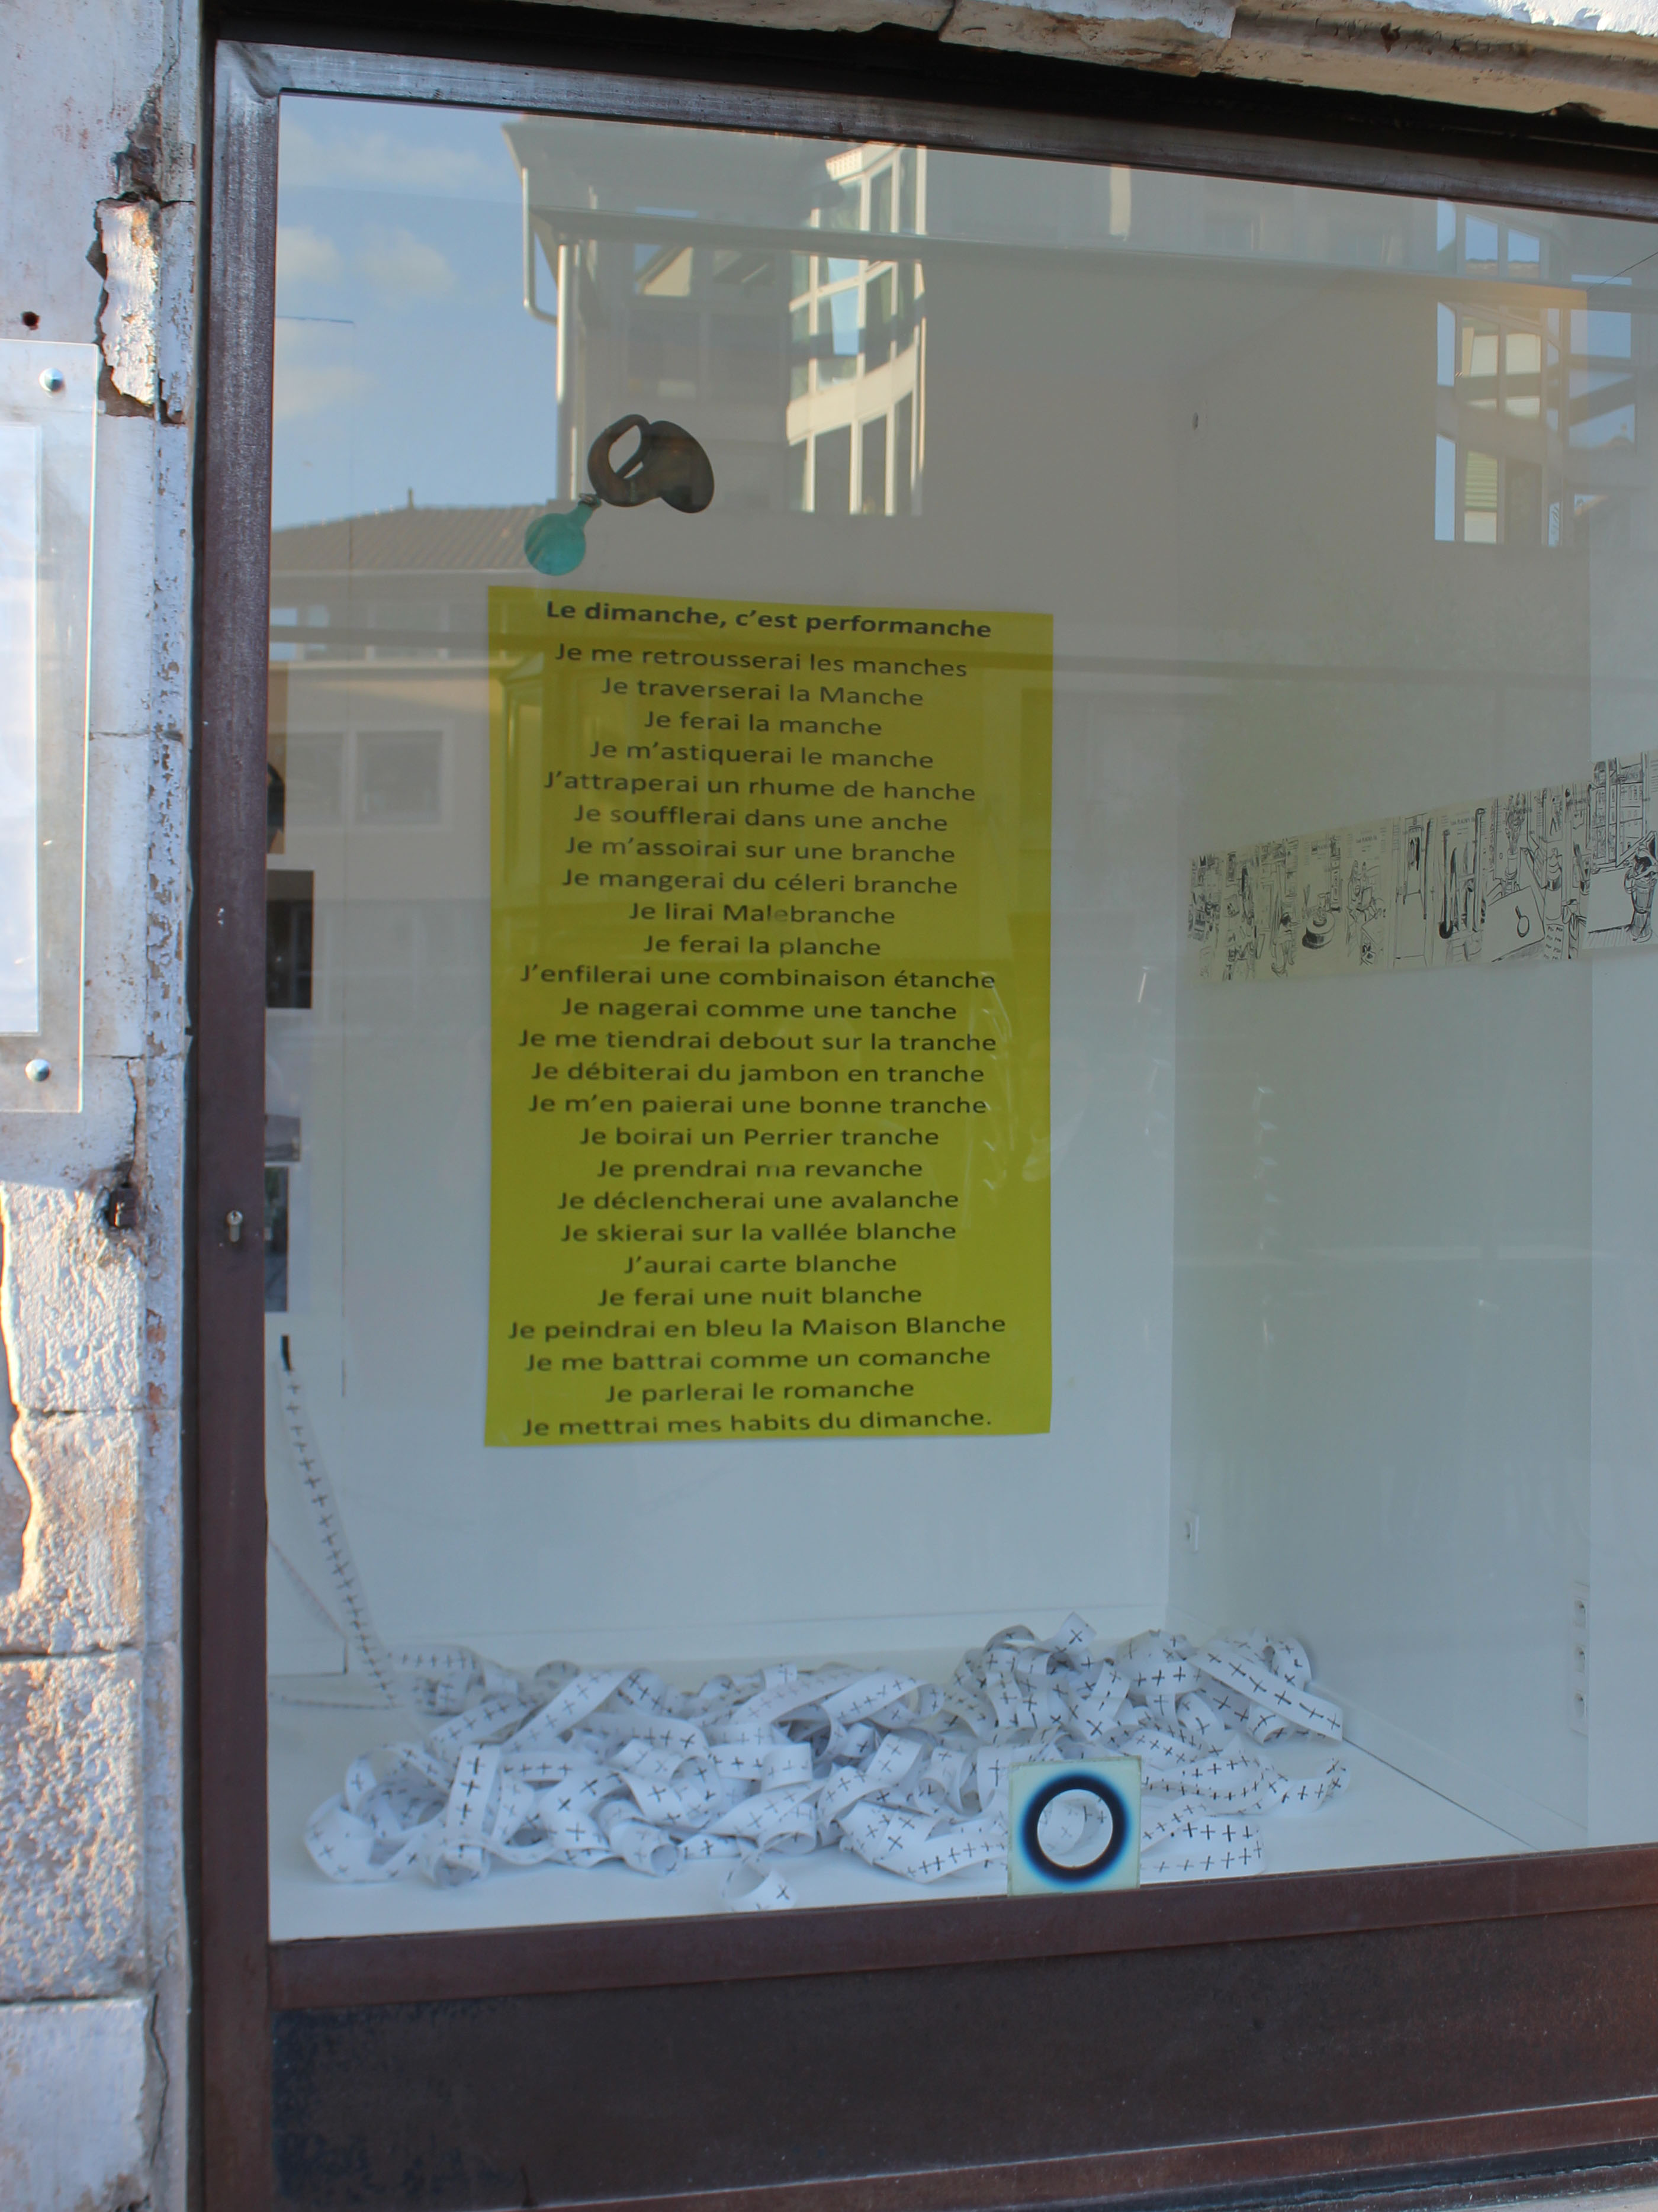 Le dimanche, c’est performanche
Je me retrousserai les manches
Je traverserai la Manche
Je ferai la manche
Je m’astiquerai le manche
J’attraperai un rhume de hanche
Je soufflerai dans une anche
Je m’assoirai sur une branche
Je mangerai du céleri branche
Je lirai Malebranche
Je ferai la planche
J’enfilerai une combinaison étanche
Je nagerai comme une tanche
Je me tiendrai debout sur la tranche
Je débiterai du jambon en tranche
Je m’en paierai une bonne tranche
Je boirai un Perrier tranche
Je prendrai ma revanche
Je déclencherai une avalanche
Je skierai sur la vallée blanche
J’aurai carte blanche
Je ferai une nuit blanche
Je peindrai en bleu la Maison Blanche
Je me battrai comme un comanche
Je parlerai le romanche
Je mettrai mes habits du dimanche.